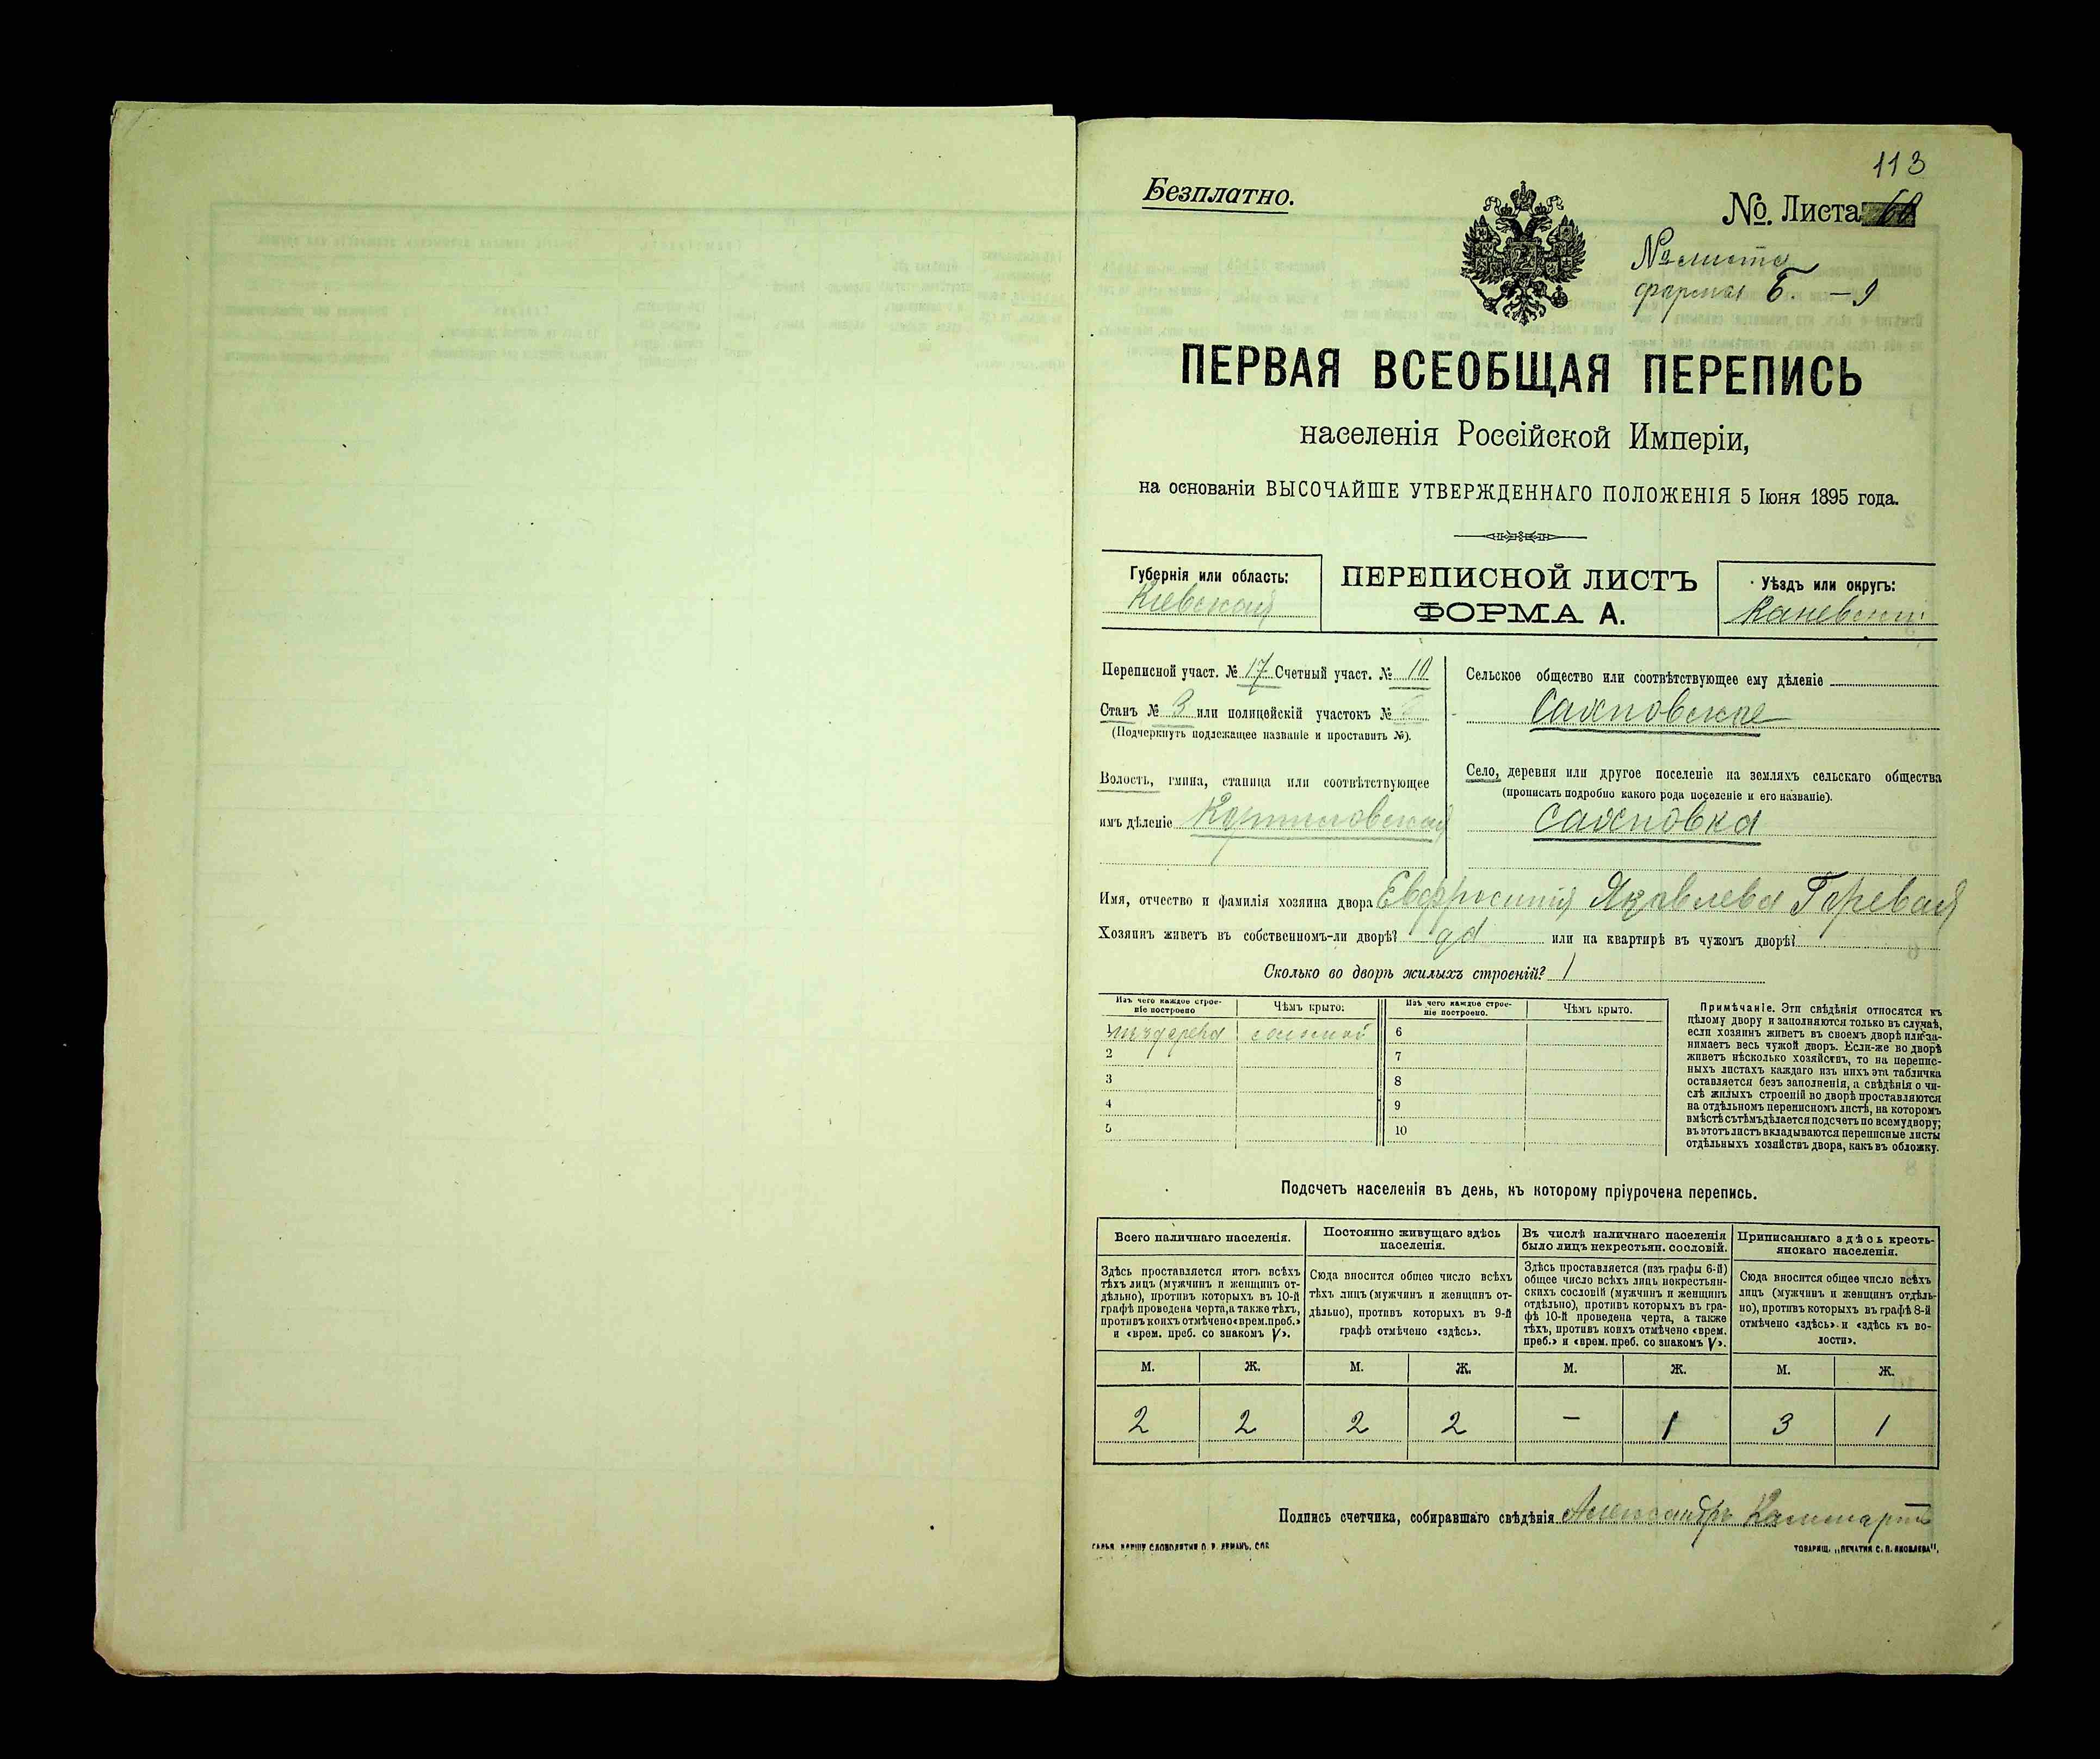 113
Безплатно.
№. Листа
№ листа
форма Б. — 9
ПЕРВАЯ ВСЕОБЩАЯ ПЕРЕПИСЬ
населенія Россійской Имперіи,
на основаніи ВЫСОЧАЙШЕ УТВЕРЖДЕННАГО ПОЛОЖЕНІЯ 5 Іюня 1895 года.
Губернія или область:
Кіевская
ПЕРЕПИСНОЙ ЛИСТЪ
ФОРМА А.
Уѣздъ или округъ:
Каневскій
Переписной участ. № 17 Счетный участ. № 10
Станъ № 3 или полицейскій участокъ №
(Подчеркнуть подлежащее названіе и проставить №).
Волость, гмина, станица или соотвѣтствующее
имъ дѣленіе
Сельское общество или соотвѣтствующее ему дѣленіе
Сахновское
Село, деревня или другое поселеніе на земляхъ сельскаго общества
(прописать подробно какого рода поселеніе и его названіе).
Сахновка
Имя, отчество и фамилія хозяина двора Евфросинія Яковлева Горевая
Хозяинъ живетъ въ собственномъ-ли дворѣ? да или на квартирѣ въ чужомъ дворѣ?
Сколько во дворѣ жилыхъ строеній? 1
Изъ чего каждое строе-
ніе построено
Чѣмъ крыто:
Изъ чего каждое строе-
ніе построено.
Чѣмъ крыто.
1 изъ дерева соломой 6
2 7
3 8
4 9
5 10
Примѣчаніе. Эти свѣдѣнія относятся къ
цѣлому двору и заполняются только въ случаѣ,
если хозяинъ живетъ въ своемъ дворѣ или за-
нимаетъ весь чужой дворъ. Если-же во дворѣ
живетъ нѣсколько хозяйствъ, то на перепис-
ныхъ листахъ каждаго изъ нихъ эта табличка
оставляется безъ заполненія, а свѣдѣнія о чи-
слѣ жилыхъ строеній во дворѣ проставляются
на отдѣльномъ переписномъ листѣ, на которомъ
вмѣстѣ съ тѣмъ дѣлается подсчетъ по всему двору;
въ этотъ листъ вкладываются переписные листы
отдѣльныхъ хозяйствъ двора, какъ въ обложку.
Подсчетъ населенія въ день, къ которому пріурочена перепись.
Всего наличнаго населенія.
Здѣсь проставляется итогъ всѣхъ
тѣхъ лицъ (мужчинъ и женщинъ от-
дѣльно), противъ которыхъ въ 10-й
графѣ проведена черта, а также тѣхъ,
противъ коихъ отмѣчено «врем. преб.»
и «врем. преб. со знакомъ V».
Постоянно живущаго здѣсь
населенія.
Сюда вносится общее число всѣхъ
тѣхъ лицъ (мужчинъ и женщинъ от-
дѣльно), противъ которыхъ въ 9-й
графѣ отмѣчено «здѣсь».
Въ числѣ наличнаго населенія
было лицъ некрестьян. сословій.
Здѣсь проставляется (изъ графы 6-й)
общее число всѣхъ лицъ некрестьян-
скихъ сословій (мужчинъ и женщинъ
отдѣльно), противъ которыхъ въ гра-
фѣ 10-й проведена черта, а также
тѣхъ, противъ коихъ отмѣчено «врем.
преб.» и «врем. преб. со знакомъ V».
Приписаннаго здѣсь кресть-
янскаго населенія.
Сюда вносится общее число всѣхъ
лицъ (мужчинъ и женщинъ отдѣль-
но), противъ которыхъ въ графѣ 8-й
отмѣчено «здѣсь» и «здѣсь къ во-
лости».
М. Ж. М. Ж. М. Ж. М. Ж.
2 2 2 2 — 1 3 1
Подпись счетчика, собиравшаго свѣдѣнія Александръ
ТОВАРИЩ. „ПЕЧАТНЯ С. П. ЯКОВЛЕВА“.